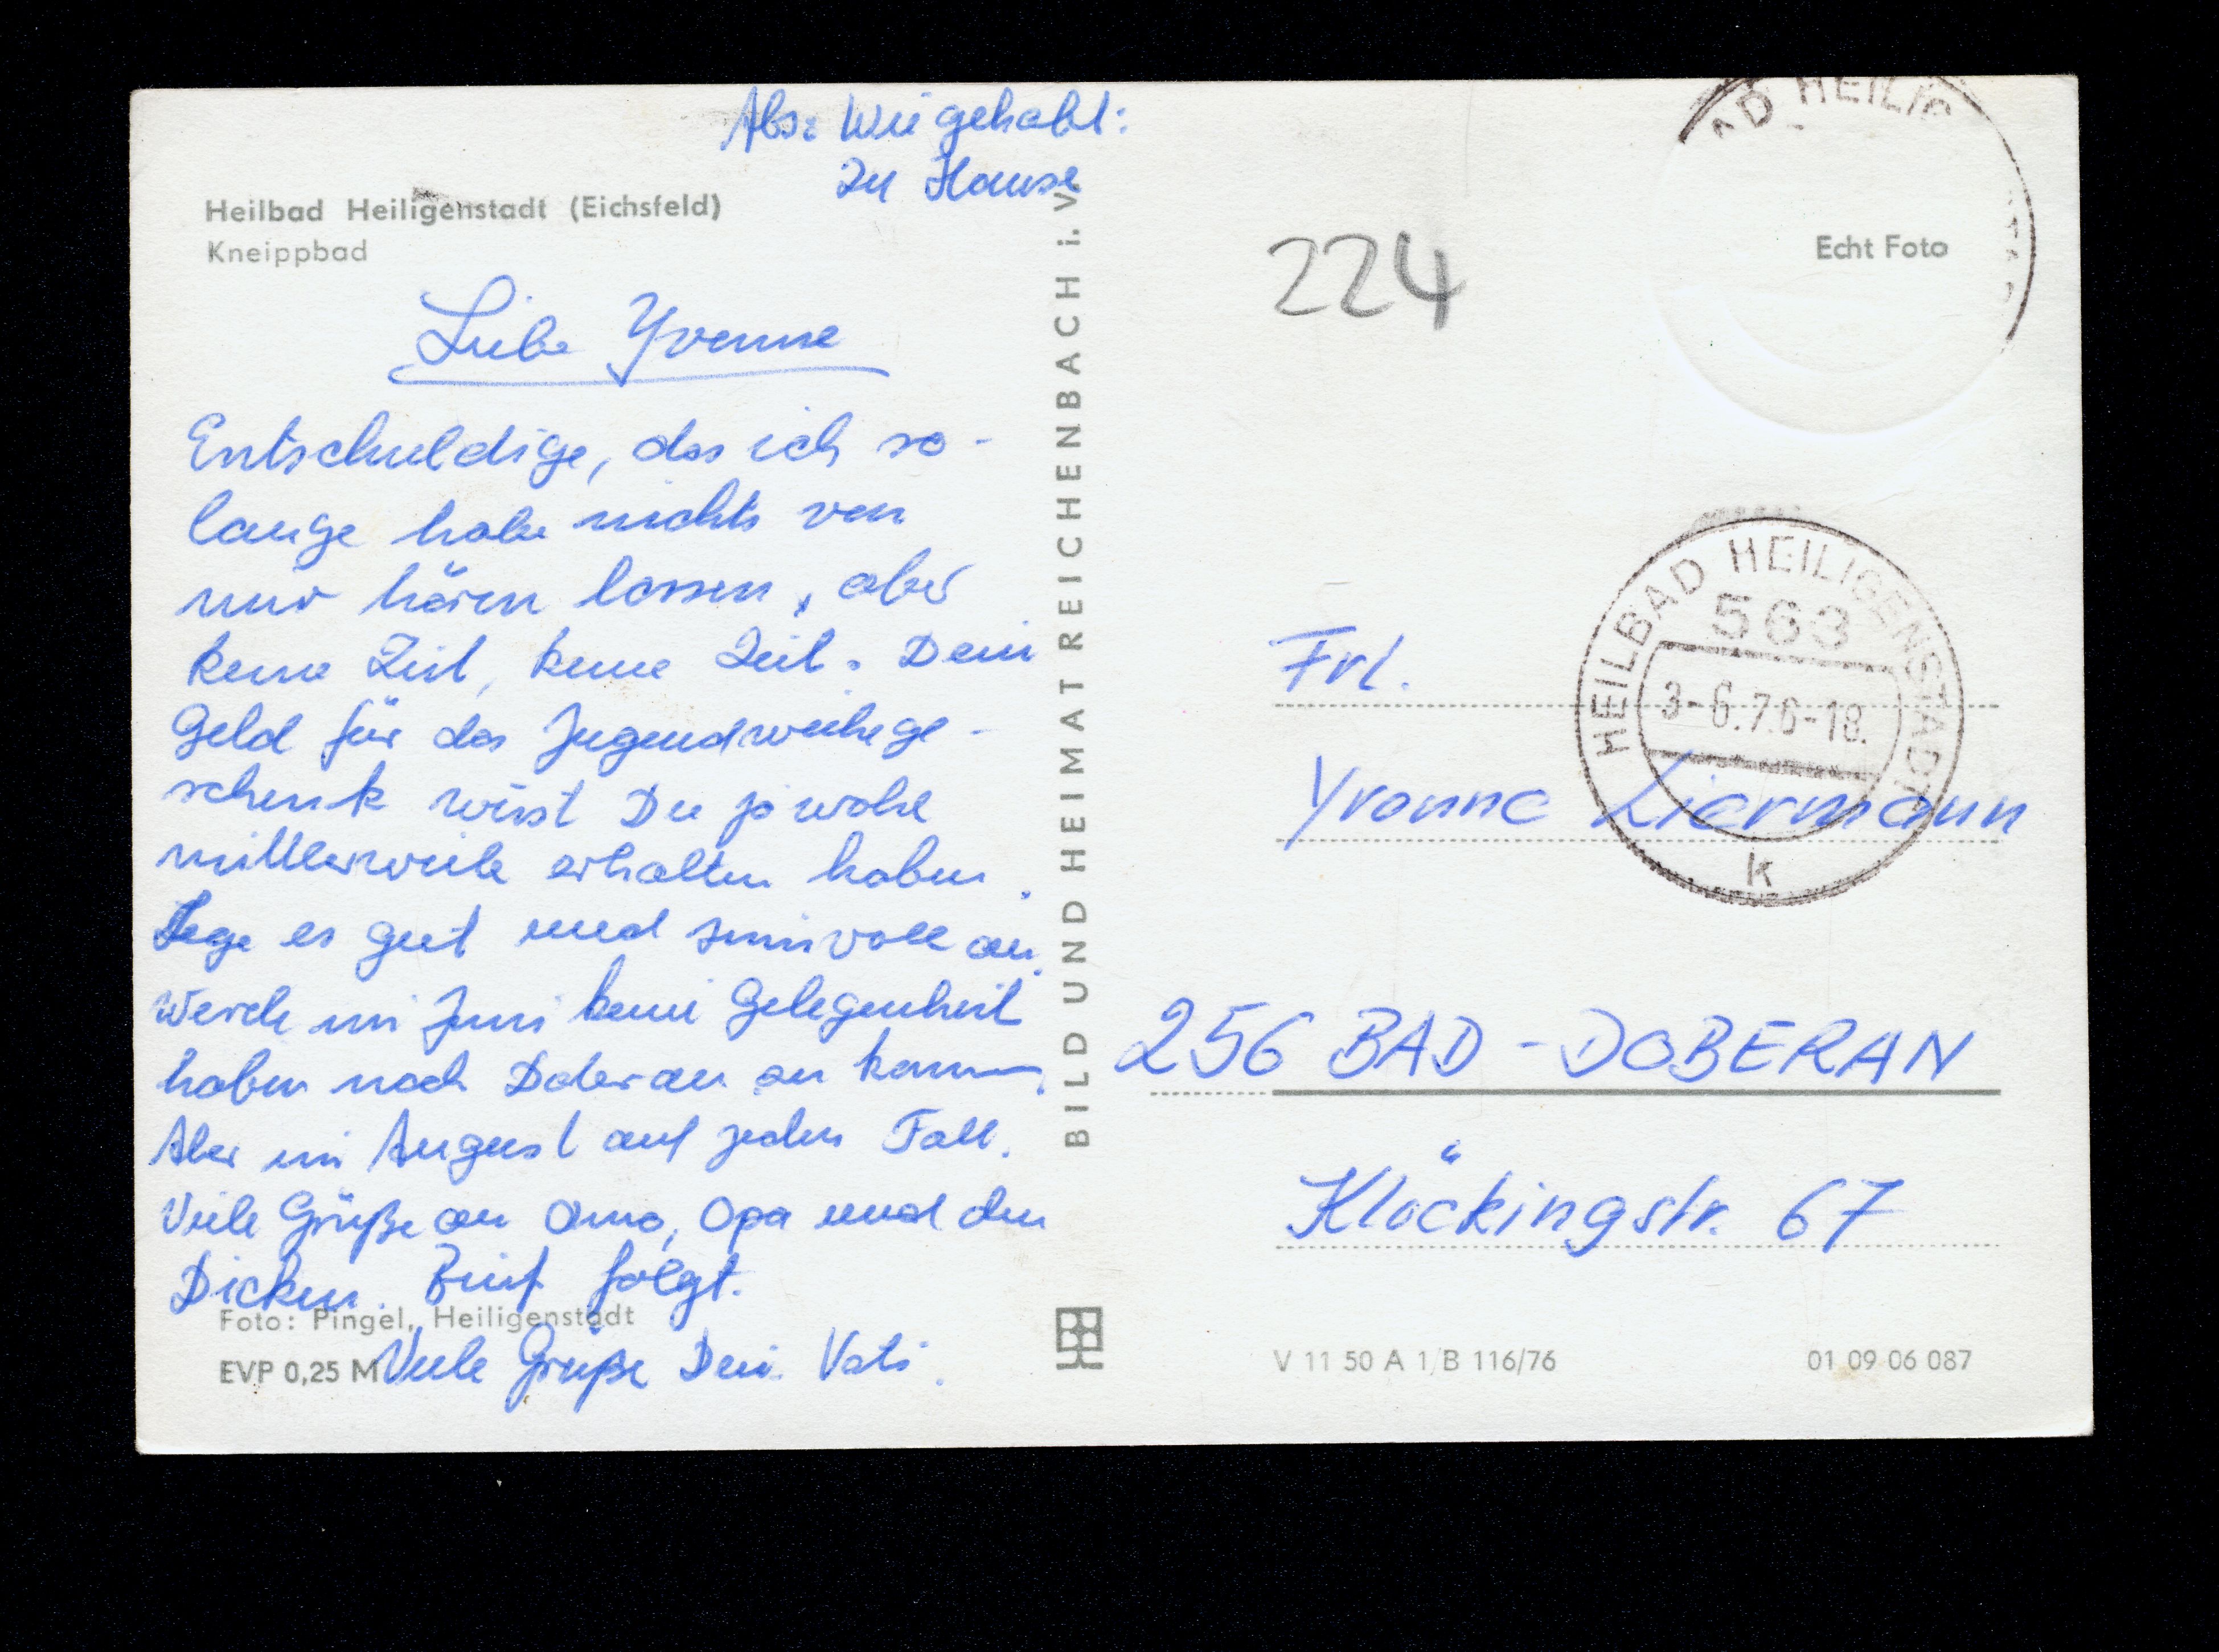 Abs: Wie gehabt:
Zu Hause
Heilbad Heiligenstadt (Eichsfeld)
Kneippbad
Liebe Yvonne
Entschuldige, das ich so-
lange habe nichts von
mir hören lassen, aber
keine Zeit, keine Zeit. Dein
Geld für das Jugendweihege-
schenk wirst Du ja wohl
mittlerweile erhalten haben.
Lege es gut und sinnvoll an.
Werde im Juni keine Gelegenheit
haben nach Doberan zu kommen.
Aber im August auf jeden Fall.
Viele Grüße an Oma, Opa und den
Dicken. Brief folgt.
Foto: Pingel, Heiligenstadt
EVP 0,25 M
Viele Grüße Dein Vati.
BILD UND HEIMAT REICHENBACH i. V.
224
AD HEILIG
Echt Foto
HEILBAD HEILIGENSTADT
563
3-6.76-18.
k
Frl.
Yvonne Liermann
256 BAD-DOBERAN
Klöckingstr. 67
V 11 50 A 1/B 116/76
01 09 06 087